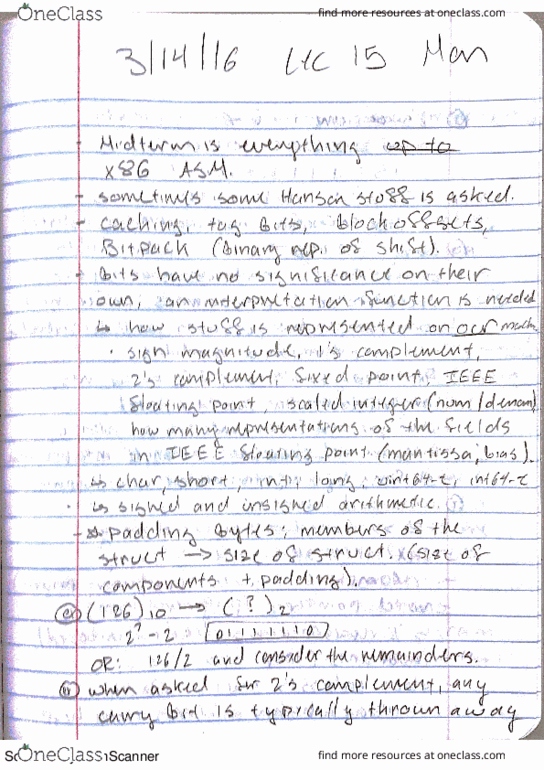 OneClass
find more resources at oneclass.com
3/14/16 LEC 15 Mon
- Midterm is everything up to
x86 ASM.
- sometimes some Hanson stuff is asked.
- caching, tag bits, block offsets,
Bitpack (binary rep. of shift).
- Bits have no significance on their
own; an interpretation function is needed
↳ how stuff is represented on our mach.
· sign magnitude, 1's complement,
2's complement, fixed point, IEEE
floating point, scaled integer (num/denom)
how many representations of the fields
in IEEE floating point (mantissa, bias).
↳ char, short, int, long, uint64-t, int64-t
↳ signed and unsigned arithmetic.
- padding bytes; members of the
struct → size of struct. (size of
components + padding).
(126)10 → (?)2
2⁷-2 01111110
OR: 126/2 and consider the remainders.
when asked for 2's complement, any
carry bit is typically thrown away
OneClass
Scanner
find more resources at oneclass.com